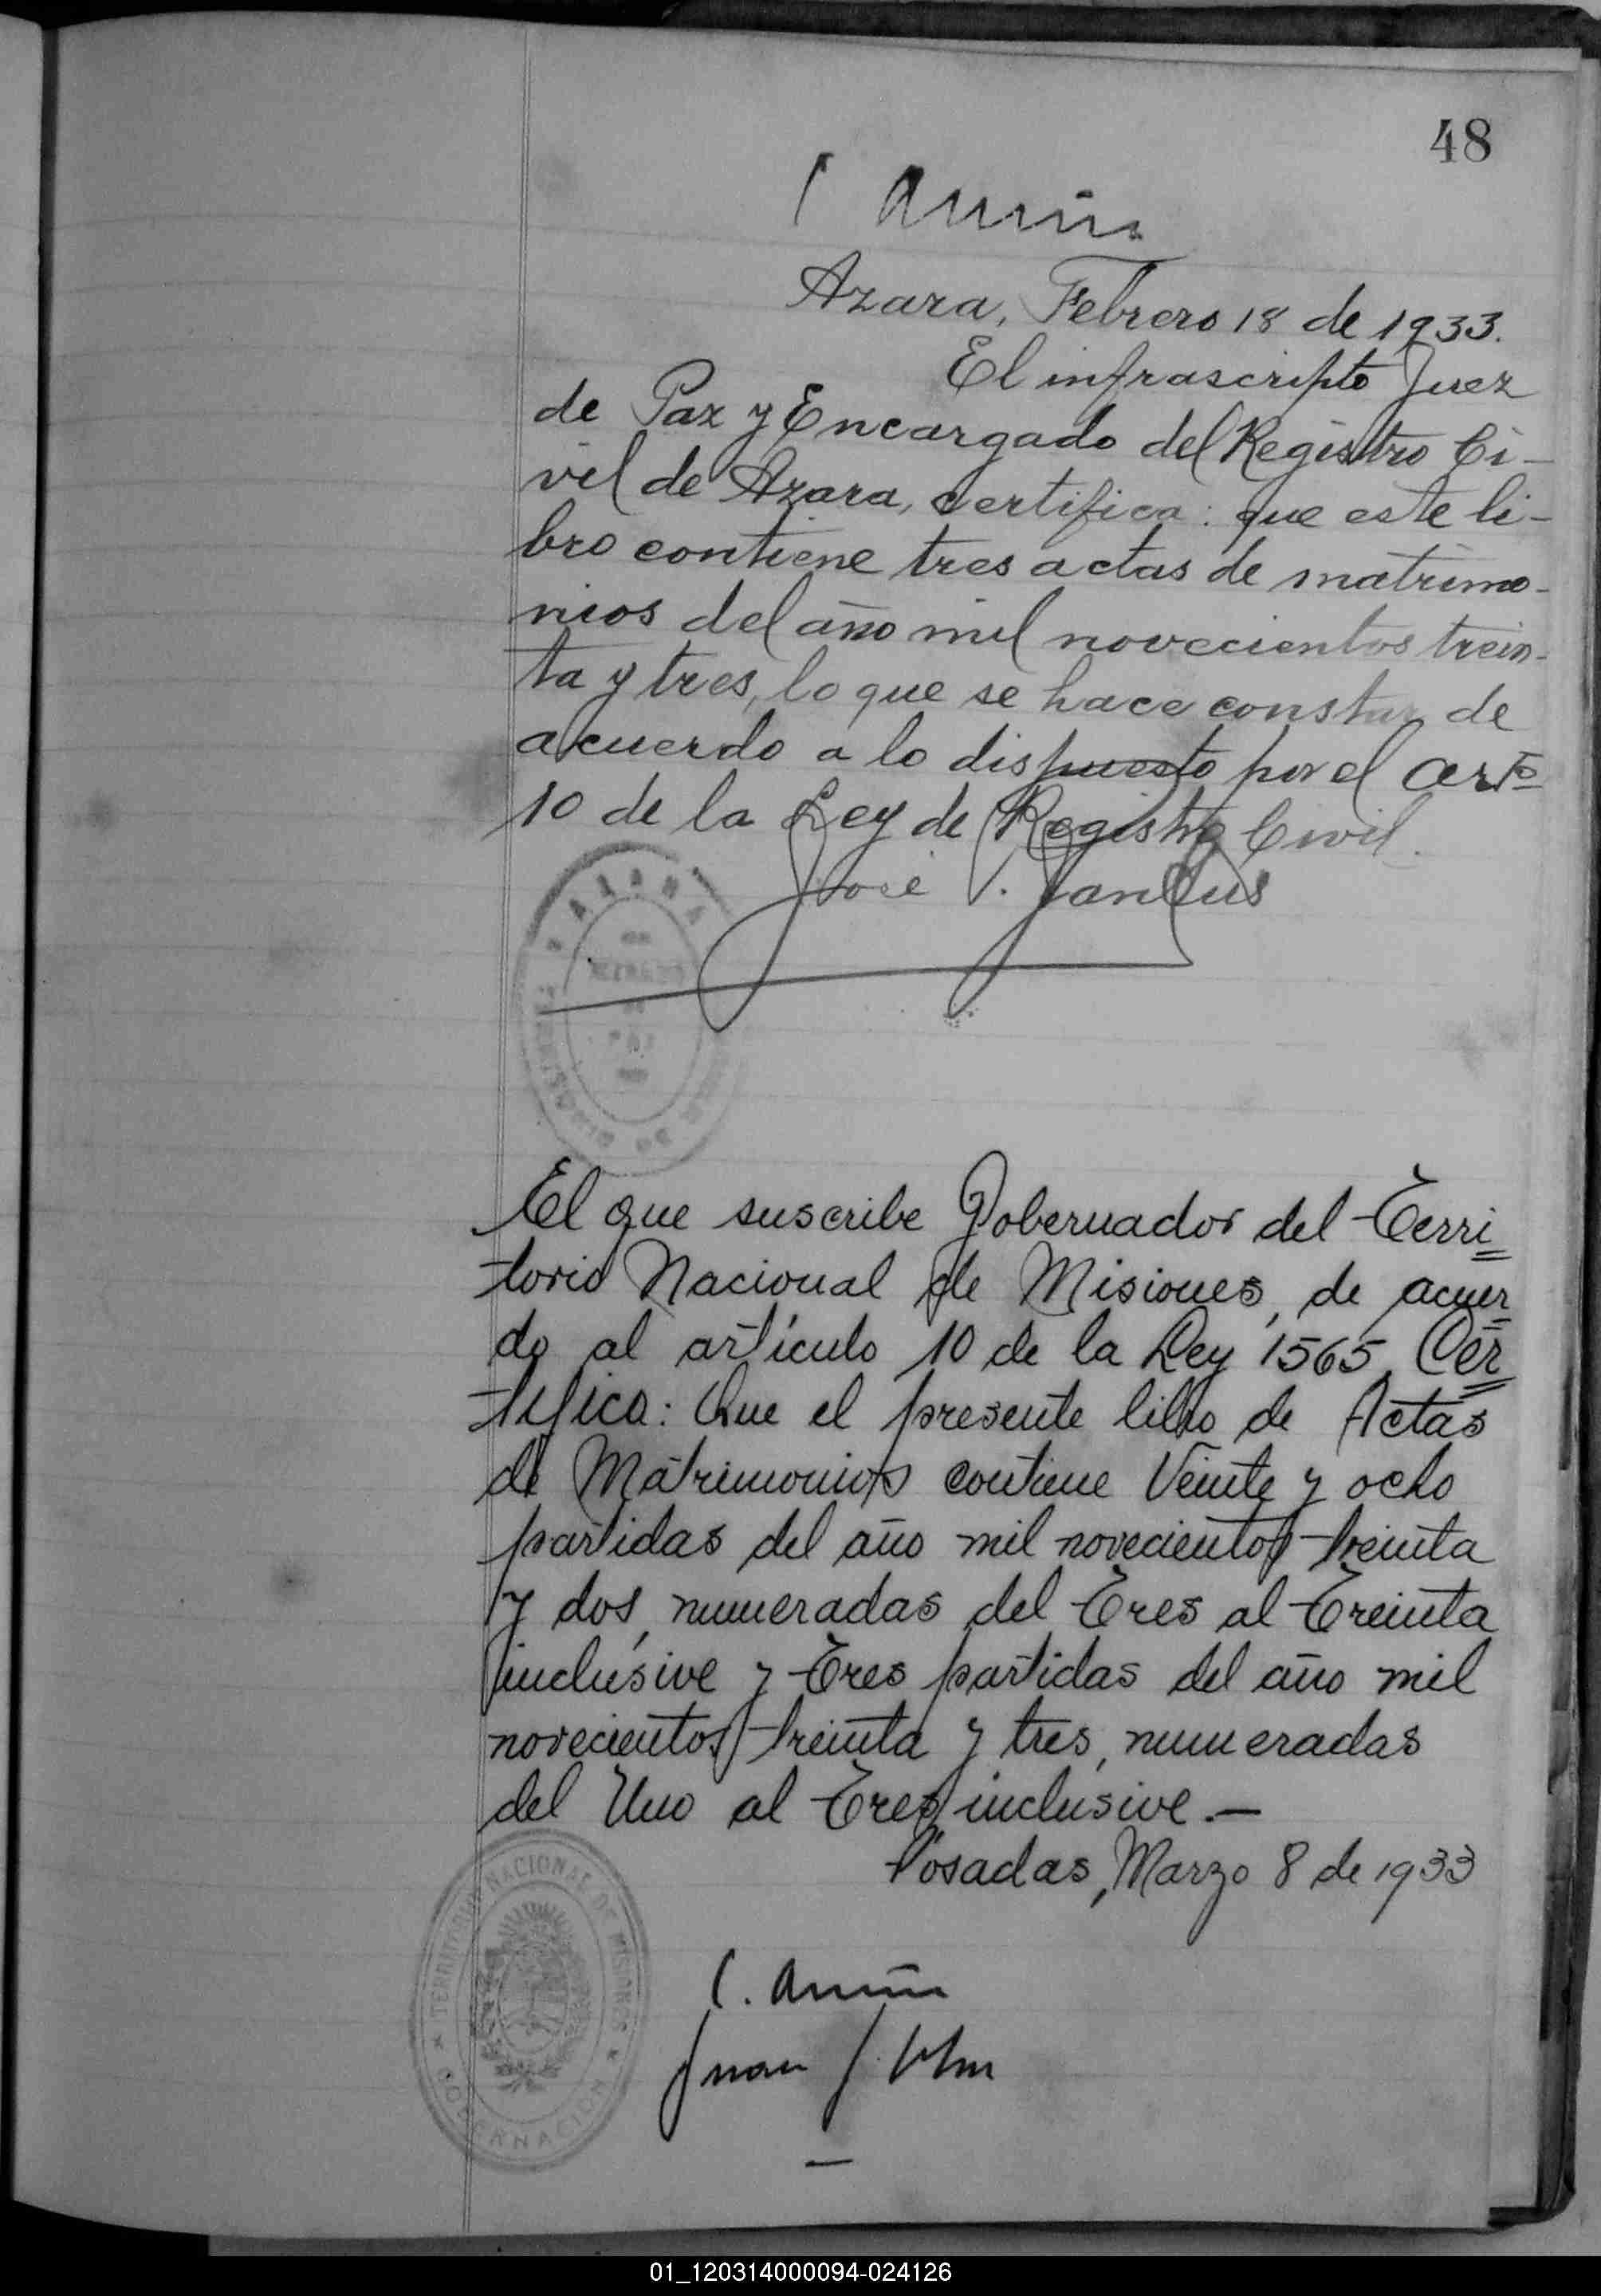 48
Azara, Febrero 18 de 1933.
El infrascripto Juez
de Paz y Encargado del Registro Ci-
vil de Azara, certifica: que este li-
bro contiene tres actas de matrimo-
nios del año mil novecientos trein-
ta y tres, lo que se hace constar de
acuerdo a lo dispuesto por el Arto
10 de la Ley de Registro Civil.
José V.
El que suscribe Gobernador del Terri=
torio Nacional de Misiones, de acuer=
do al artículo 10 de la Ley 1565, Cer=
tifica: Que el presente libro de Actas
de Matrimonios contiene Veinte y ocho
partidas del año mil novecientos treinta
y dos, numeradas del Tres al Treinta
inclusive y Tres partidas del año mil
novecientos treinta y tres, numeradas
del Uno al Tres inclusive.—
Posadas, Marzo 8 de 1933
TERRITORIO NACIONAL DE MISIONES
GOBERNACION
Juan J.
01_120314000094-024126